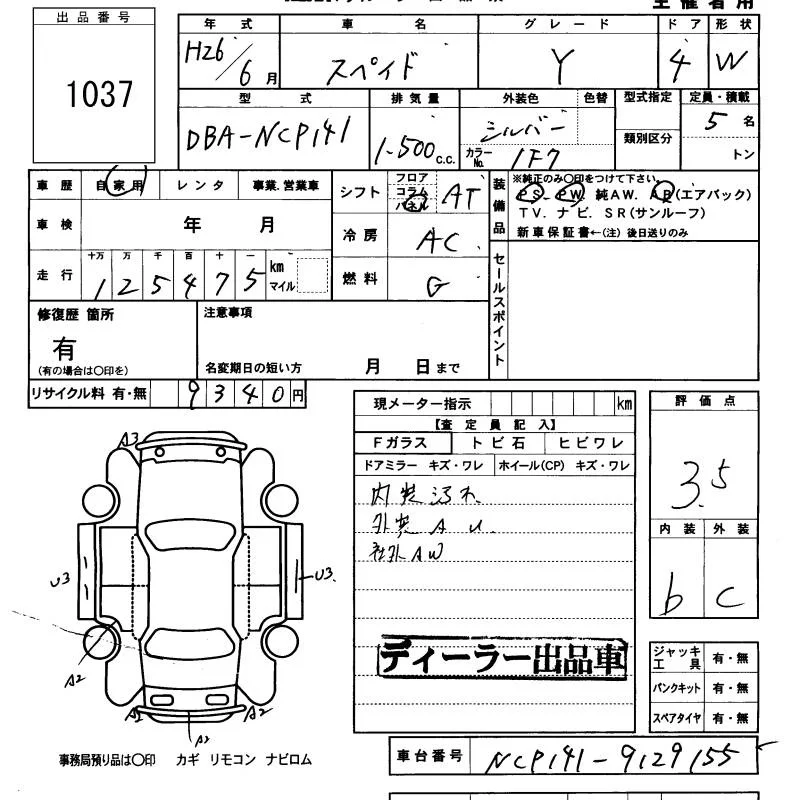 主催者用
出品番号
1037
年式 車名 グレード ドア 形状
H26/6月 スペイド Y 4 W
型式 排気量 外装色 色替 型式指定 定員・積載
DBA-NCP141 1-500c.c. シルバー 5名
カラーNo. 1F7 類別区分 トン
車歴 自家用 レンタ 事業.営業車
シフト フロア コラム パネル AT
装備品 ※純正のみ○印をつけて下さい。
PS. PW. 純AW. AB(エアバック)
TV. ナビ. SR(サンルーフ)
新車保証書←(注) 後日送りのみ
車検 年 月
冷房 AC
走行 十万 万 千 百 十 一
125475 km マイル
燃料 G
セールスポイント
修復歴 箇所
有
(有の場合は○印を)
注意事項
名変期日の短い方 月 日まで
リサイクル料 有・無 9340円
現メーター指示 km
【査定員記入】
Fガラス トビ石 ヒビワレ
ドアミラー キズ・ワレ ホイール(CP) キズ・ワレ
内装汚れ
外装 A U.
社外AW
ディーラー出品車
評価点
3.5
内装 外装
b C
ジャッキ工具 有・無
パンクキット 有・無
スペアタイヤ 有・無
A3
U3 U3.
A2
A1 A2
A2
事務局預り品は○印 カギ リモコン ナビロム
車台番号 NCP141-9129155